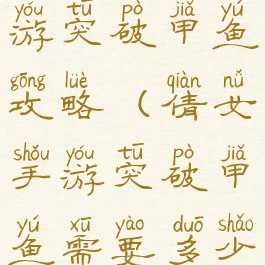 yóu tū pò jiǎ yú
游突破甲鱼
gōng lüè qiàn nǚ
攻略(倩女
shǒu yóu tū pò jiǎ
手游突破甲
yú xū yào duō shǎo
鱼需要多少